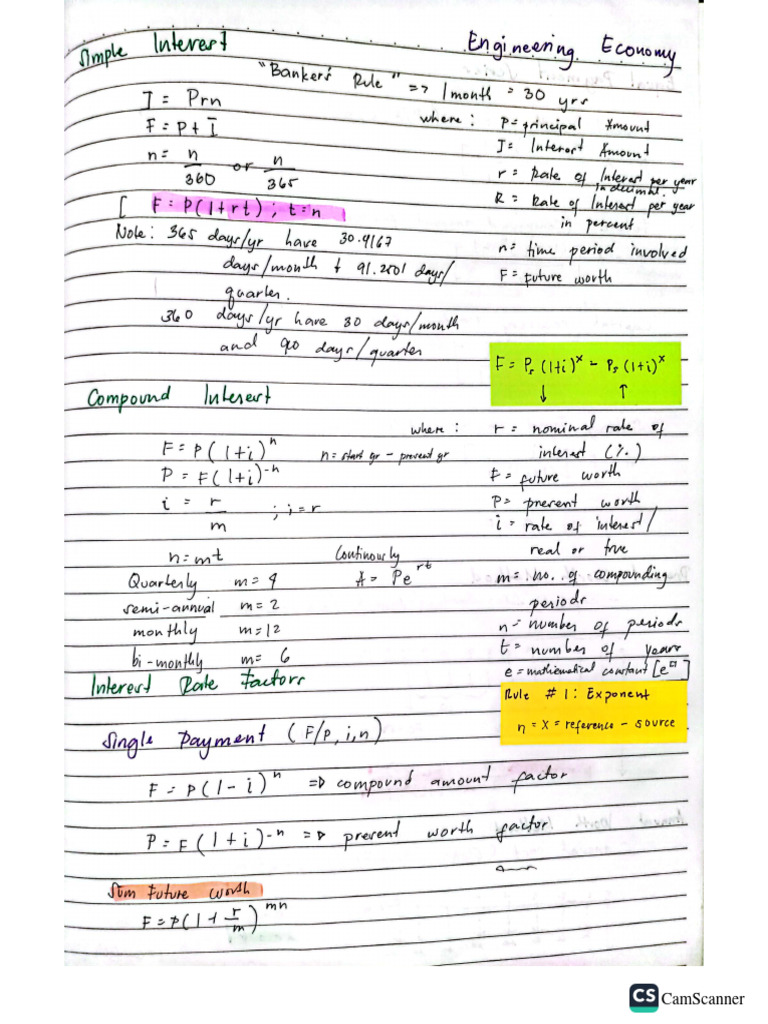 Simple Interest
Engineering Economy
"Banker's Rule" => 1 month = 30 yrs
I = Prn
F = P + I
n = n/360 or n/365
[ F = P(1+rt) ; t = n ]
Note: 365 days/yr have 30.4167
days/month + 91.2501 days/
quarter.
360 days/yr have 30 days/month
and 90 days/quarter
where: P = principal Amount
I = Interest Amount
r = Rate of Interest per year
in decimal
R = Rate of Interest per year
in percent
n = time period involved
F = Future worth
F = P₅ (1+i)ˣ – P₅ (1+i)ˣ
↓ ↑
Compound Interest
F = P(1+i)ⁿ
n = start yr – present yr
P = F(1+i)⁻ⁿ
i = r/m ; i = r
n = mt
Quarterly m = 4
semi-annual m = 2
monthly m = 12
bi-monthly m = 6
Continously
A = Pe^rt
where: r = nominal rate of
interest (%)
F = future worth
P = present worth
i = rate of interest/
real or true
m = no. of compounding
periods
n = number of periods
t = number of years
e = mathematical constant [e^□]
Interest Rate Factors
Rule # 1: Exponent
n = x = reference – source
Single Payment (F/P, i, n)
F = P(1-i)ⁿ => compound amount factor
P = F(1+i)⁻ⁿ => present worth factor
Sum Future worth
F = P(1 + r/m)^mn
CS CamScanner